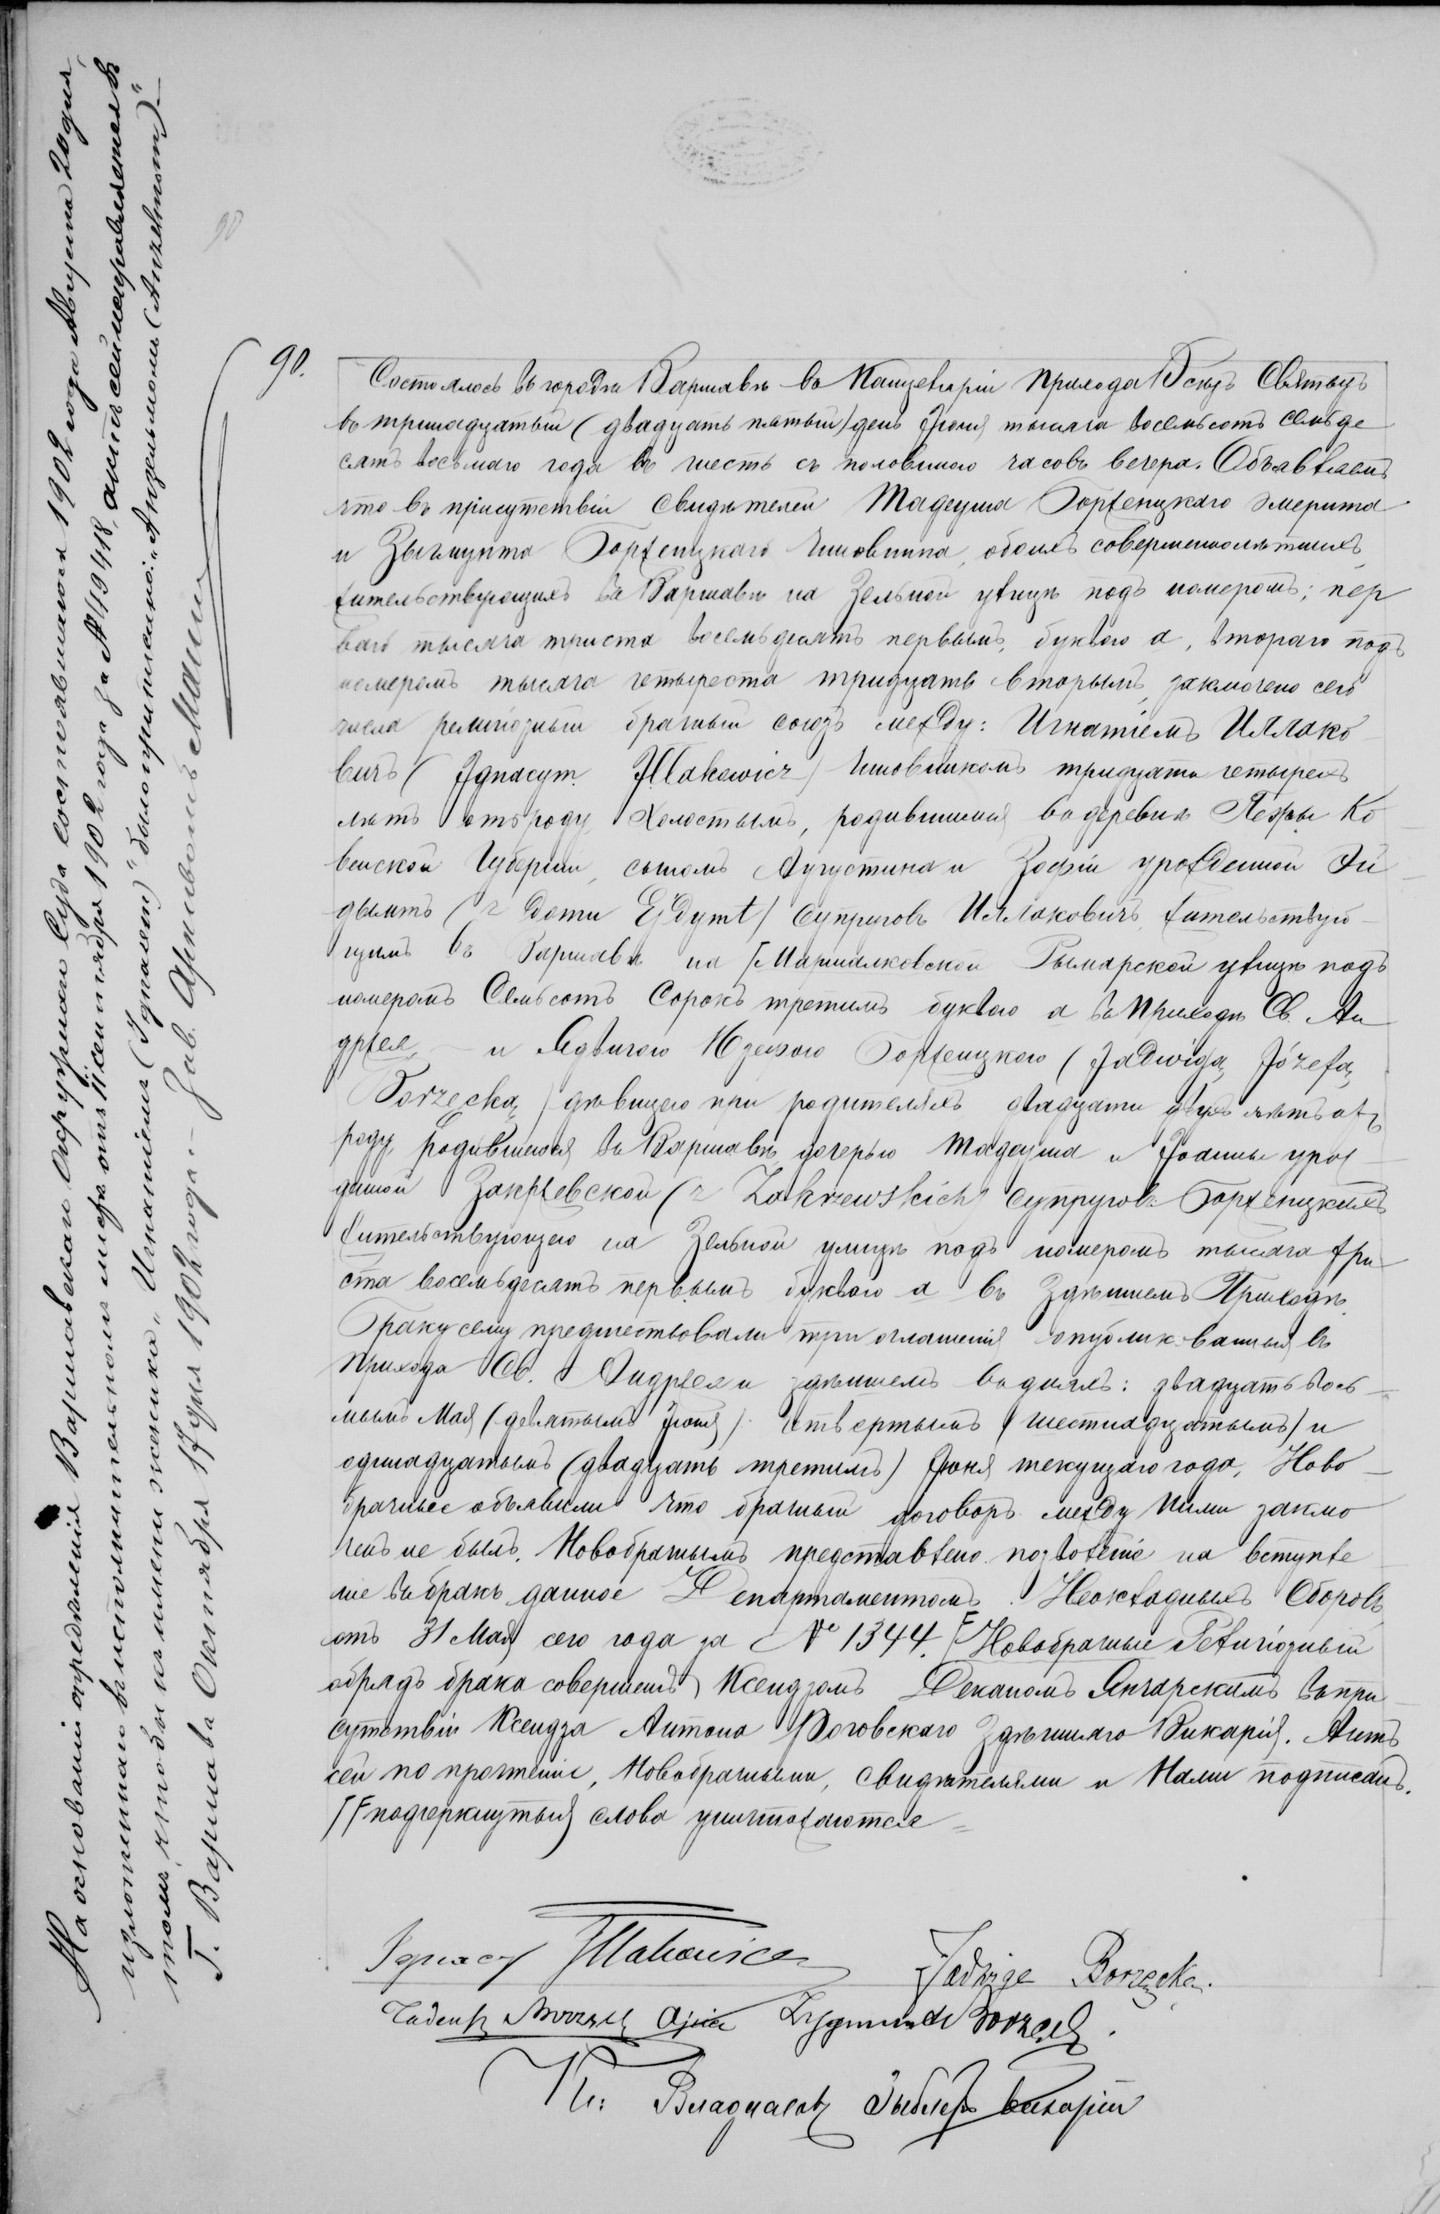 90.
Состоялось въ городѣ Варшавѣ въ Канцеляріи Прихода Всѣхъ Святыхъ
въ тринадцатый (двадцать пятый) день Іюня тысяча восемьсотъ семьде
сятъ восьмаго года въ шесть съ половиною часовъ вечера. Объявляемъ
что въ присутствіи свидѣтелей Тадеуша Боржецкаго эмерита
и Зыгмунта Боржецкаго чиновника, обоихъ совершеннолѣтнихъ
жительствующихъ въ Варшавѣ на Зельной улицѣ подъ номеромъ; пер
ваго тысяча триста восемьдесятъ первымъ, буквою а, втораго подъ
номеромъ тысяча четыреста тридцать вторымъ, заключено сего
числа религіозный брачный союзъ между: Игнатіемъ Иллако
вичъ (Ignacym Iłłakowicz) чиновникомъ тридцати четырехъ
лѣтъ отъ роду холостымъ, родившимся въ деревнѣ Ко
венской Губерніи, сыномъ Августина и Зофіи урожденной Эй
дымтъ (z domu Ejdymt) супруговъ Иллаковичъ, жительствую
щимъ въ Варшавѣ на [Маршалковской Рымарской улицѣ подъ
номеромъ Семьсотъ Сорокъ третимъ буквою а въ Приходѣ Св. Ан
држея, — и Ядвигою Юзефою Боржецкою (Jadwigą Józefą
Borzecką) дѣвицею при родителяхъ двадцати двухъ лѣтъ отъ
роду, родившеюся въ Варшавѣ дочерью Тадеуша и Іоанны урож
дшой Закржевской (z Zakrzewskich) супруговъ Боржецкихъ
жительствующею на Зельной улицѣ подъ номеромъ тысяча три
ста восемьдесятъ первымъ буквою а въ Здѣшнемъ Приходѣ.
Браку сему предшествовали три оглашенія опубликованныя въ
Прихода Св. Андржея и здѣшнемъ въ дняхъ: двадцать вось
мымъ Мая (девятымъ Іюня) четвертымъ (шестнадцатымъ) и
одиннадцатымъ (двадцать третимъ) Іюня текущаго года, Ново
брачные объявили что брачный договоръ между ними заклю
ченъ не былъ. Новобрачнымъ представлено позволеніе на вступле
ніе въ бракъ данное Департаментомъ Неокладныхъ Сборовъ
отъ 31 Мая сего года за № 1344. [Новобрачные Религіозный
обрядъ брака совершенъ Ксендзомъ Деканомъ въ при
сутствіи Ксендза Антона Роговскаго Здѣшняго Викарія. Актъ
сей по прочтеніи, Новобрачными, свидѣтелями и Нами подписанъ.
[подчеркнутыя слова уничтожаются =
Ignacy Iłłakowicz Jadwiga Borzęcka.
Tadeusz Borzęcki ojciec Zygmunt Borzęcki.
Кс: Владиславъ Викарій
На основаніи опредѣленія Варшавскаго Окружнаго Суда состоявшагося 1902 года Августа 20 дня,
изложеннаго въ исполнительномъ листѣ отъ 11 Сентября 1902 года за № 19418, актъ сей исправляется въ
томъ, чтобы къ имени жениха „Игнатіемъ (Ignacem)" было приписано: „Анзельмомъ (Anzelmem)".
Г. Варшава Октября 17 дня 1902 года. — Зав. Архивомъ